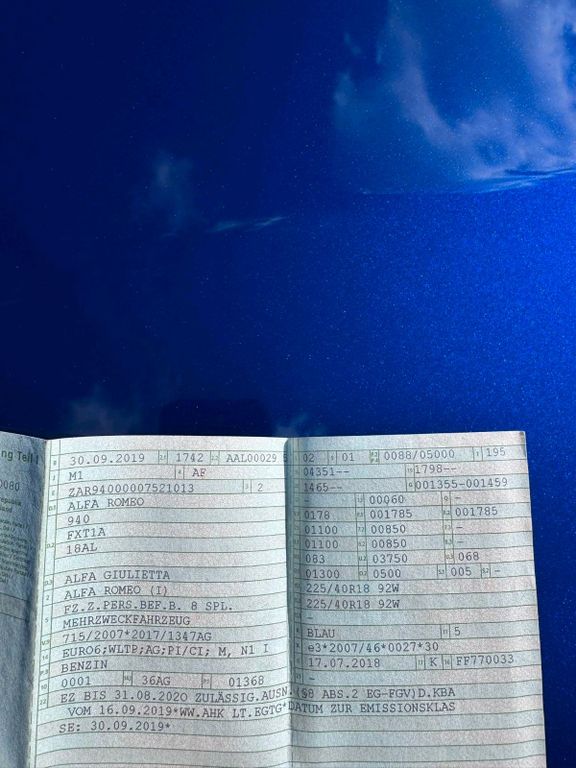 ng Teil I
0080
30.09.2019 1742 AAL00029 5 02 01 0088/05000 195
M1 AF 04351-- 1798--
ZAR94000007521013 2 1465-- 001355-001459
ALFA ROMEO 00060 -
940 0178 001785 001785
FXT1A 01100 00850 -
18AL 01100 00850 -
083 03750 068
ALFA GIULIETTA 01300 0500 005 -
ALFA ROMEO (I) 225/40R18 92W
FZ.Z.PERS.BEF.B. 8 SPL. 225/40R18 92W
MEHRZWECKFAHRZEUG -
715/2007*2017/1347AG BLAU 5
EURO6;WLTP;AG;PI/CI; M, N1 I e3*2007/46*0027*30
BENZIN 17.07.2018 K FF770033
0001 36AG 01368 -
EZ BIS 31.08.2020 ZULÄSSIG.AUSN.(§8 ABS.2 EG-FGV)D.KBA
VOM 16.09.2019*WW.AHK LT.EGTG*DATUM ZUR EMISSIONSKLAS
SE: 30.09.2019*